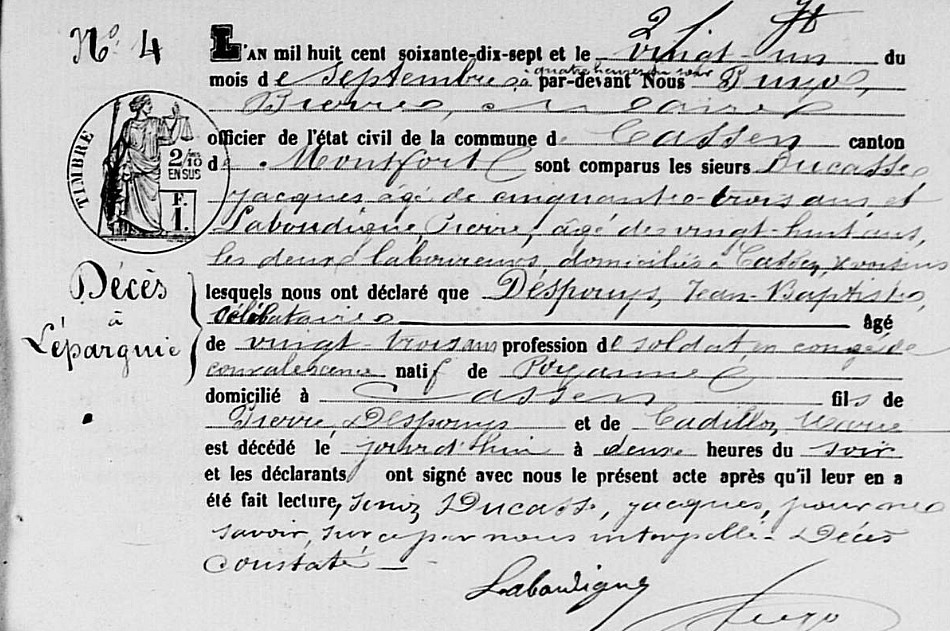 N° 4
L'AN mil huit cent soixante-dix-sept et le vingt-un du
mois de septembre à quatre heures du soir par-devant Nous Puyo,
Pierre, maire
officier de l'état civil de la commune de Cassen canton
de Montfort sont comparus les sieurs Ducasse
Jacques âgé de cinquante-trois ans et
Laboudigue Pierre, âgé de vingt-huit ans,
les deux laboureurs, domiciliés à Cassen, voisins
lesquels nous ont déclaré que Despouys, Jean-Baptiste,
célibataire âgé
de vingt-trois ans profession de soldat en congé de
convalescence natif de Poyanne
domicilié à Cassen fils de
Pierre Despouys et de Cadillon Marie
est décédé le jourd'hui à deux heures du soir
et les déclarants ont signé avec nous le présent acte après qu'il leur en a
été fait lecture, Ducasse, jacques, pour ne
savoir, sur ce par nous interpellé. Décès
Constaté
Laboudigue
Puyo
TIMBRE
2/10
EN SUS
F.
1.
Décès
à
Léparguie